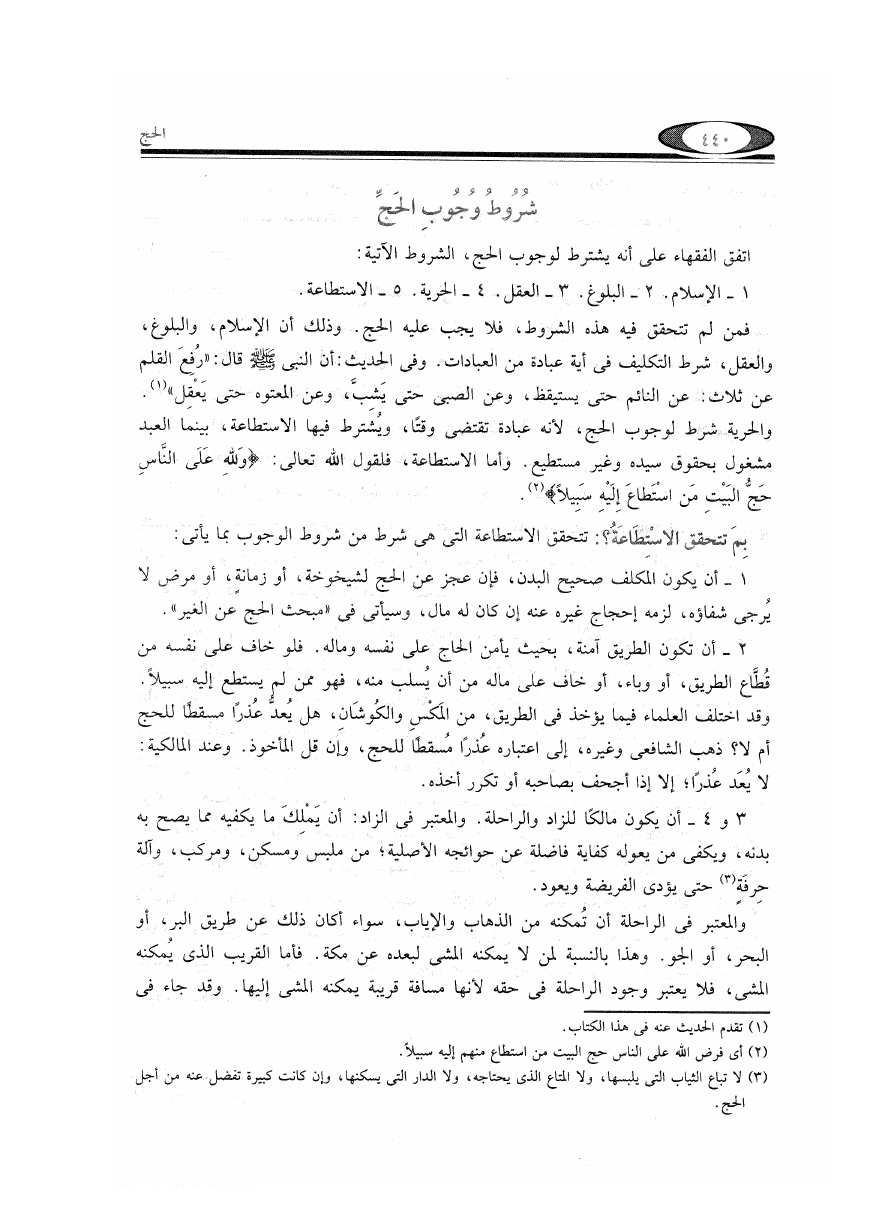 ٤٤٠
الحج
شُرُوطُ وُجُوبِ الحَجِّ
اتفق الفقهاء على أنه يشترط لوجوب الحج، الشروط الآتية:
١ ـ الإسلام. ٢ ـ البلوغ. ٣ ـ العقل. ٤ ـ الحرية. ٥ ـ الاستطاعة.
فمن لم تتحقق فيه هذه الشروط، فلا يجب عليه الحج. وذلك أن الإسلام، والبلوغ،
والعقل، شرط التكليف فى أية عبادة من العبادات. وفى الحديث: أن النبى ﷺ قال: «رُفِعَ القلم
عن ثلاث: عن النائم حتى يستيقظ، وعن الصبى حتى يَشِبَّ، وعن المعتوه حتى يَعْقِل»(١).
والحرية شرط لوجوب الحج، لأنه عبادة تقتضى وقتًا، ويُشترط فيها الاستطاعة، بينما العبد
مشغول بحقوق سيده وغير مستطيع. وأما الاستطاعة، فلقول الله تعالى: ﴿وَللهِ عَلَى النَّاسِ
حَجُّ البَيْتِ مَن اسْتَطَاعَ إِلَيْهِ سَبِيلاً﴾(٢).
بِمَ تتحقق الاسْتِطَاعَةُ؟: تتحقق الاستطاعة التى هى شرط من شروط الوجوب بما يأتى:
١ ـ أن يكون المكلف صحيح البدن، فإن عجز عن الحج لشيخوخة، أو زمانةٍ، أو مرض لا
يُرجى شفاؤه، لزمه إحجاج غيره عنه إن كان له مال، وسيأتى فى «مبحث الحج عن الغير».
٢ ـ أن تكون الطريق آمنة، بحيث يأمن الحاج على نفسه وماله. فلو خاف على نفسه من
قُطَّاع الطريق، أو وباء، أو خاف على ماله من أن يُسلب منه، فهو ممن لم يستطع إليه سبيلاً.
وقد اختلف العلماء فيما يؤخذ فى الطريق، من المَكْسِ والكُوشَانِ، هل يُعدُّ عُذرًا مسقطًا للحج
أم لا؟ ذهب الشافعى وغيره، إلى اعتباره عُذرًا مُسقطًا للحج، وإن قل المأخوذ. وعند المالكية:
لا يُعَد عُذرًا؛ إلا إذا أجحف بصاحبه أو تكرر أخذه.
٣ و ٤ ـ أن يكون مالكًا للزاد والراحلة. والمعتبر فى الزاد: أن يَمْلِكَ ما يكفيه مما يصح به
بدنه، ويكفى من يعوله كفاية فاضلة عن حوائجه الأصلية؛ من ملبس ومسكن، ومركب، وآلة
حِرفَةٍ(٣) حتى يؤدى الفريضة ويعود.
والمعتبر فى الراحلة أن تُمكنه من الذهاب والإياب، سواء أكان ذلك عن طريق البر، أو
البحر، أو الجو. وهذا بالنسبة لمن لا يمكنه المشى لبعده عن مكة. فأما القريب الذى يُمكنه
المشى، فلا يعتبر وجود الراحلة فى حقه لأنها مسافة قريبة يمكنه المشى إليها. وقد جاء فى
(١) تقدم الحديث عنه فى هذا الكتاب.
(٢) أى فرض الله على الناس حج البيت من استطاع منهم إليه سبيلاً.
(٣) لا تباع الثياب التى يلبسها، ولا المتاع الذى يحتاجه، ولا الدار التى يسكنها، وإن كانت كبيرة تفضل عنه من أجل
الحج.